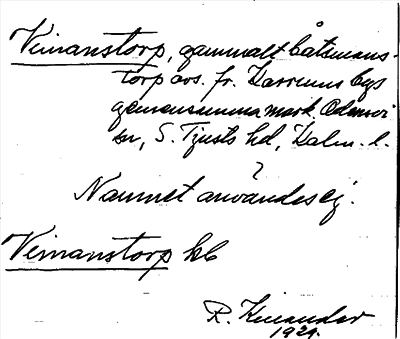 Vemanstorp, gammalt båtsmans-
torp avs. fr. Karrums bys
gemensamma mark. Odensvi
sn, S. Tjusts hd, Kalm. l.
?
Namnet användes ej.
Vemanstorp kb
R. Kinander
1929.